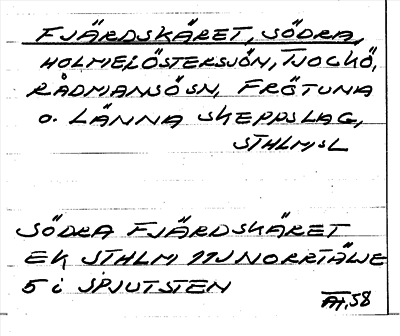 FJÄRDSKÄRET, SÖDRA,
HOLME I ÖSTERSJÖN, TJOCKÖ,
RÅDMANSÖ SN, FRÖTUNA
O. LÄNNA SKEPPSLAG,
STHLMSL
SÖDRA FJÄRDSKÄRET
EK STHLM 11J NORRTÄLJE
5 i SPJUTSTEN
58